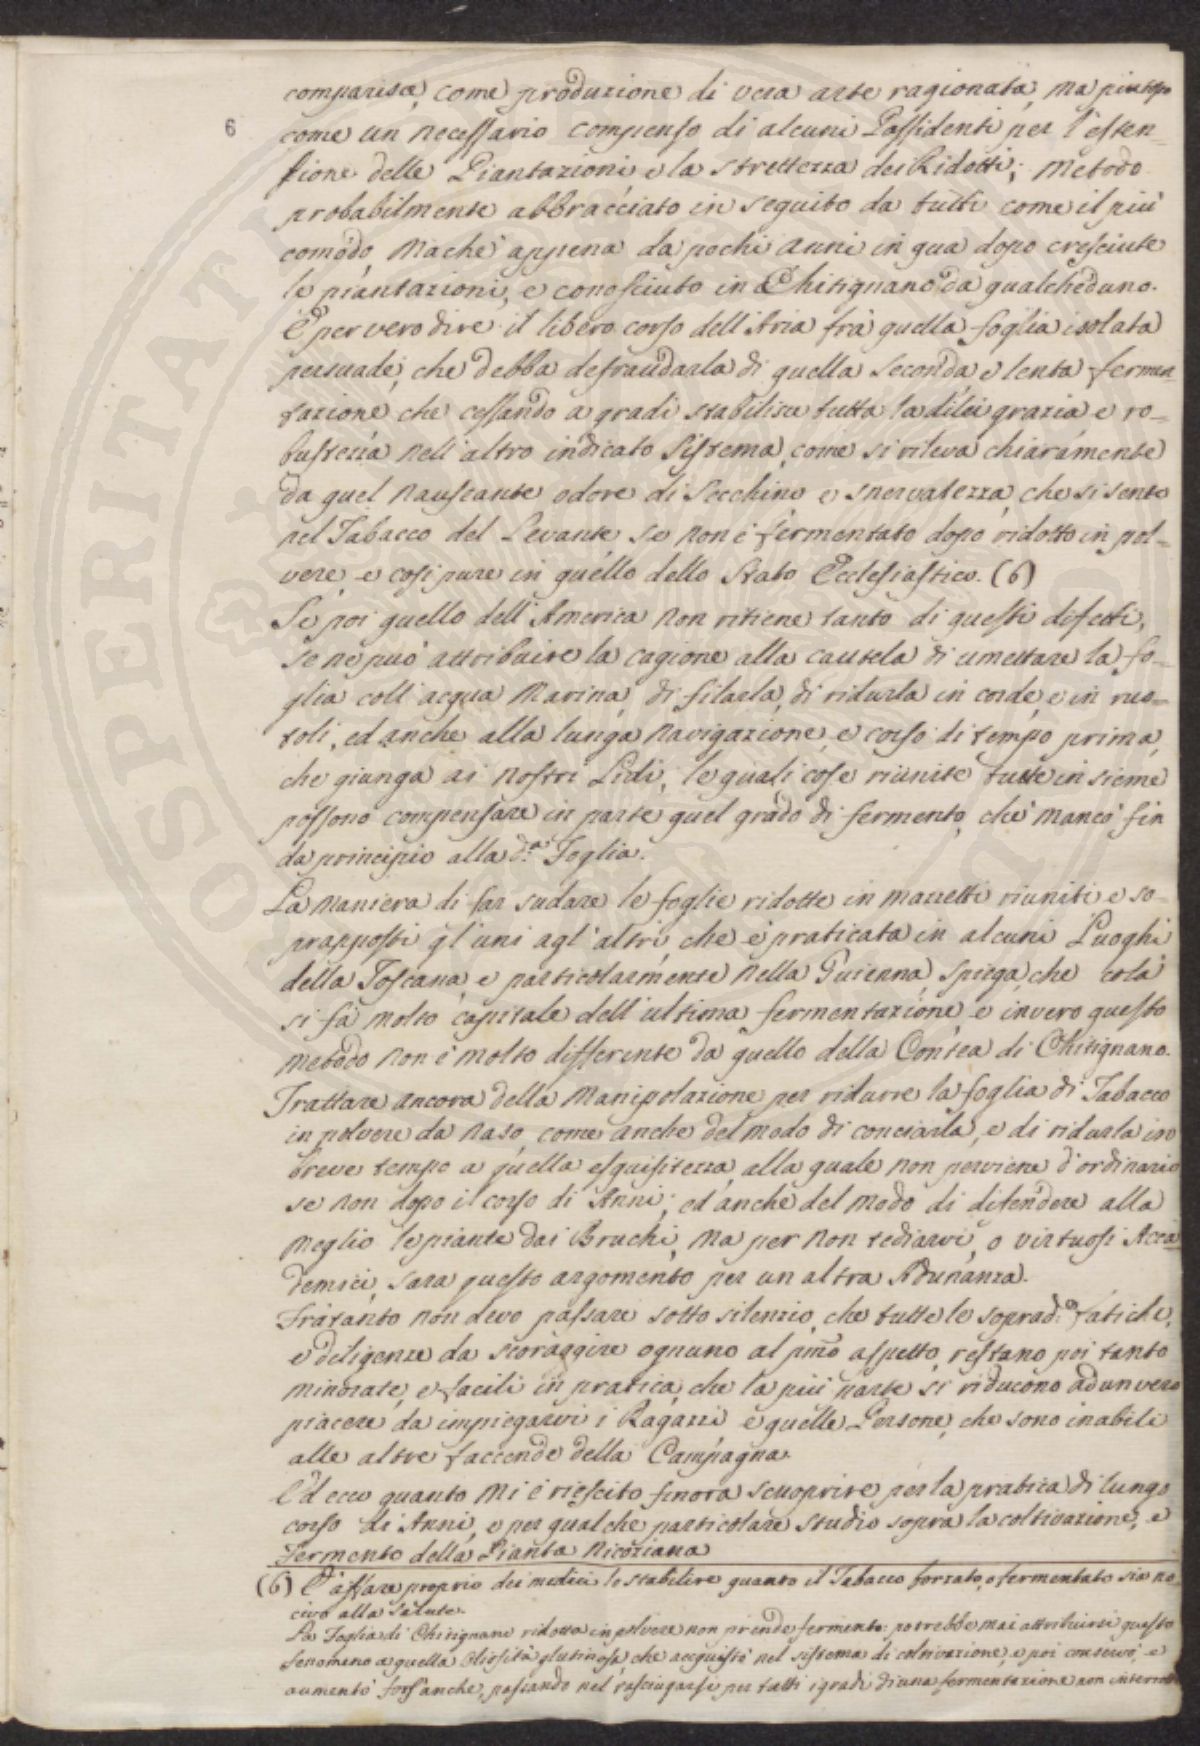 comparisce, come produzione di vera arte ragionata, ma piutosto
6
come un necessario compenso di alcuni Possidenti per l'esten-
sione delle Piantazioni, e la strettezza dei Ridotti; Metodo
probabilmente abbracciato in seguito da tutti come il più
comodo, Ma che appena da pochi Anni in qua dopo cresciute
le piantazioni, e conosciuto in Chitignano da qualcheduno.
E per vero dire il libero corso dell'Aria frà quella foglia isolata
persuade, che debba defraudarla di quella seconda, e lenta fermen-
tazione che cessando a gradi stabilisce tutta la dilei grazia e ro-
bustezza nell'altro indicato Sistema, come si rileva chiaramente
da quel Nauseante odore di Secchino e snervatezza, che si sente
nel Tabacco del Levante, se non è fermentato dopo ridotto in pol-
vere, e così pure in quello dello Stato Ecclesiastico. (6)
Se poi quello dell'America Non ritiene tanto di questi difetti,
se ne può attribuire la cagione alla cautela di umettare la fo-
glia coll'acqua Marina, di filarla, di ridurla in corde, e in ruo-
toli, ed anche alla lunga Navigazione, e corso di tempo prima,
che giunga ai Nostri Lidi; le quali cose riunite tutte insieme
possono compensare in parte quel grado di fermento, che mancò fin
da principio alla d.ª Foglia.
La Maniera di far sudare le foglie ridotte in mazzetti riuniti e so-
prapposti gl'uni agl'altri che è praticata in alcuni Luoghi
della Toscana, e particolarmente Nella Guienna, spiega, che colà
si fà Molto capitale dell'ultima fermentazione, e invero questo
Metodo Non è Molto differente da quello della Contea di Chitignano.
Trattare Ancora della Manipolazione per ridurre la foglia di Tabacco
in polvere da Naso, come anche del modo di conciarla, e di ridurla in
breve tempo a quella esquisitezza, alla quale non perviene d'ordinario
se Non dopo il corso di Anni; ed anche del Modo di difendere alla
Meglio le piante dai Bruchi, Ma per Non tediarvi, o virtuosi Acca-
demici, sara questo argomento per un altra Adunanza.
Fratanto Non devo passare sotto silenzio, che tutte le soprad.e fatiche,
e deligenze da scoraggire ognuno al pmo aspetto, restano poi tanto
minorate, e facili in pratica, che la più parte si riducono ad un vero
piacere, da impiegarvi i Ragazzi e quelle Persone, che sono inabili
alle altre faccende della Campagna.
Ed ecco quanto Mi è riescito finora scuoprire per la pratica di lungo
corso di Anni, e per qualche particolare Studio sopra la coltivazione, e
Fermento della Pianta Nicoziana
(6) E' affare proprio dei medici lo stabilire quanto il Tabacco forzato, o fermentato sia no-
civo alla Salute.
La Foglia di Chitignano ridotta in polvere non prende fermento: potrebbe mai attribuirsi questo
fenomeno a quella Oliosità glutinosa che acquistò nel sistema di coltivazione, e poi conservò, e
aumentò fors'anche, passando nel rasciugarsi per tutti i gradi di una fermentazione non interrotta